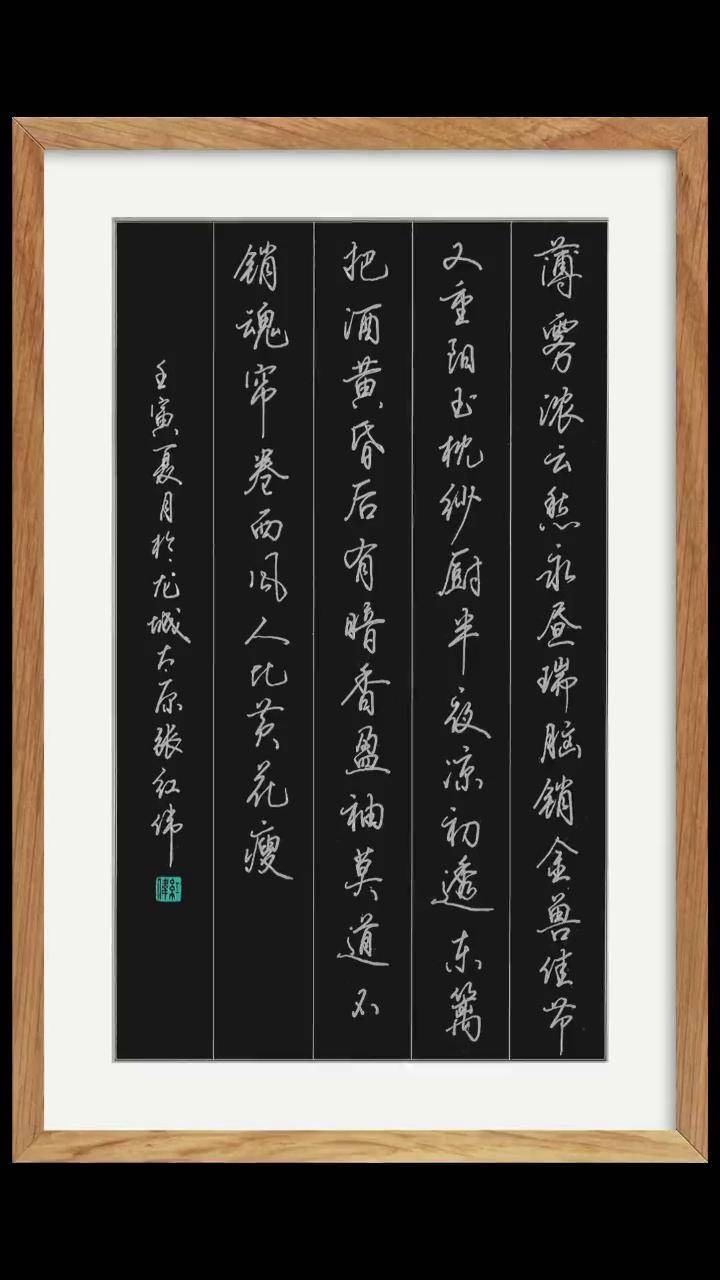 薄雾浓云愁永昼瑞脑销金兽佳节
又重阳玉枕纱厨半夜凉初透东篱
把酒黄昏后有暗香盈袖莫道不
销魂帘卷西风人比黄花瘦
壬寅夏月于龙城太原张红伟
红伟